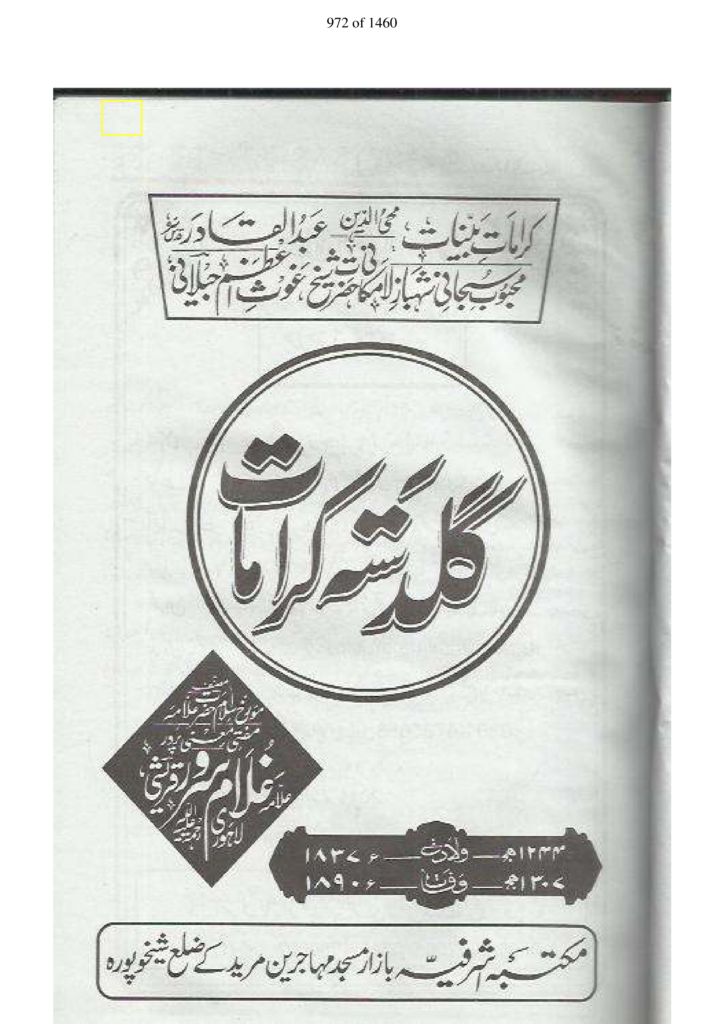 972 of 1460
کرامات بینات محی الدین عبدالقادر قدس سرہ
محبوب سبحانی شہباز لامکانی حضرت شیخ غوث اعظم جیلانی
گلدستہ کرامات
مصنف
مورخ اسلام حضرت علامہ
مفتی معنی پرور
علامہ غلام سرور قریشی
لاہوری رحمۃ اللہ علیہ
۱۲۴۴ھ ولادت ۱۸۳۷ء
۱۳۰۷ھ وفات ۱۸۹۰ء
مکتبہ اشرفیہ بازار مسجد مہاجرین مرید کے ضلع شیخوپورہ